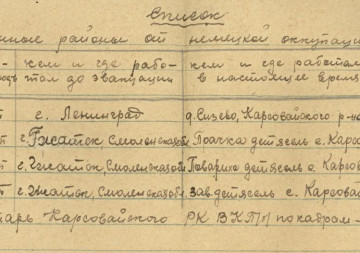 Список
нные районы от немецкой оккупаци
кем и где рабо- кем и где работал
тал до эвакуации в настоящее время
г. Ленинград д. Сизево, Карсовайского р-на
г. Гжатск Смоленской Поачка детясель с. Карсо
г. Гжатск, Смоленской Повариха детясель с. Карсо
г. Гжатск, Смоленской зав. детясель с. Карсовай
тарь Карсовайского РК ВКП по кадрам -